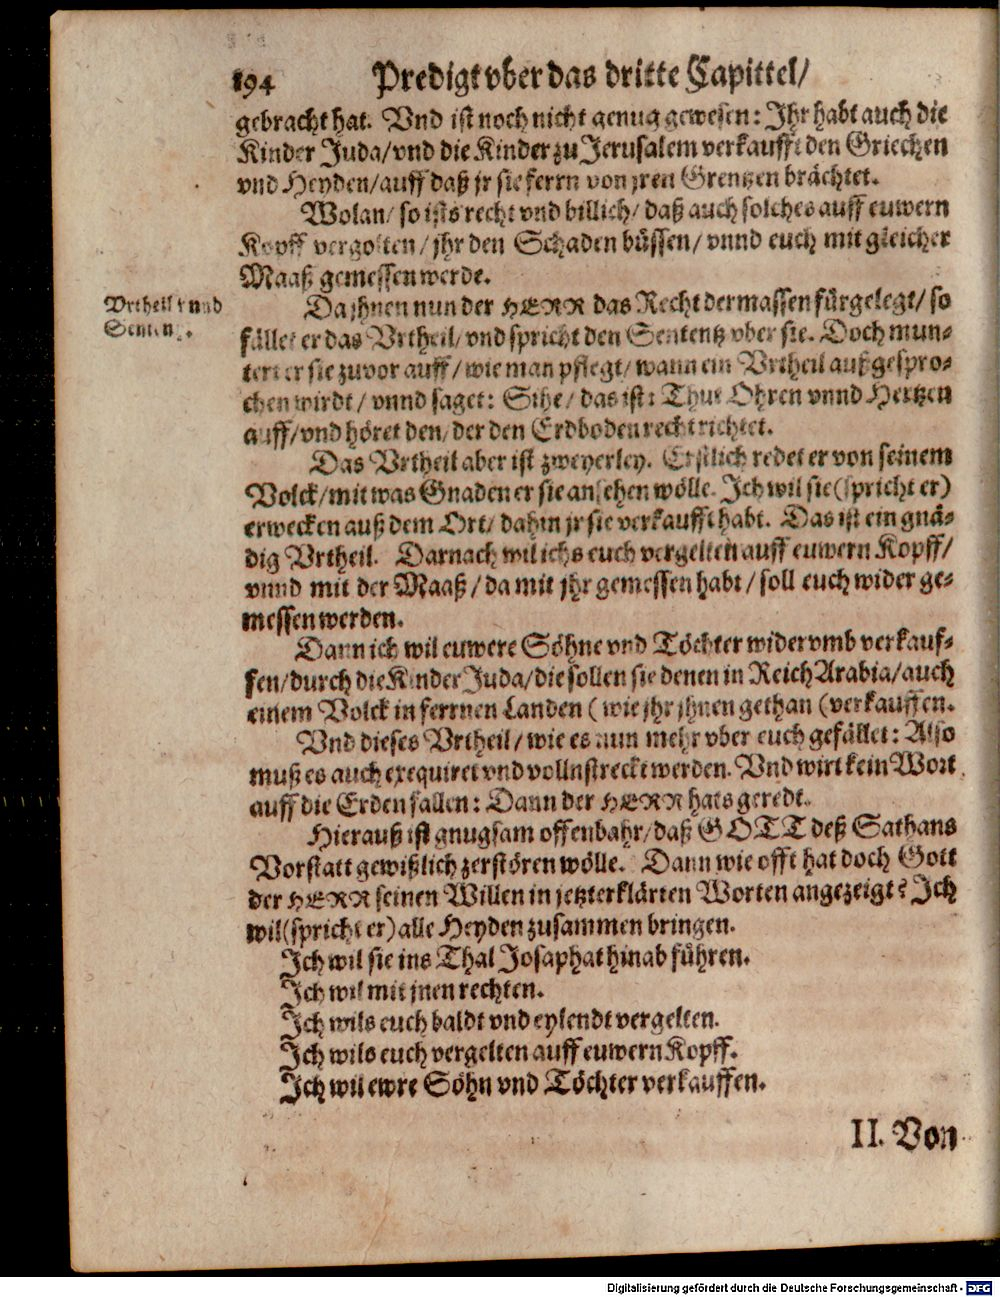 194 Predigt vber das dritte Capittel/
gebracht hat. Vnd ist noch nicht genug gewesen: Ihr habt auch die
Kinder Juda/vnd die Kinder zu Jerusalem verkaufft den Griechen
vnd Heyden/auff daß jr sie ferrn von jren Grentzen brächtet.
Wolan/ so ists recht vnd billich/ daß auch solches auff euwern
Kopff vergolten/ jhr den Schaden büssen/ vnnd euch mit gleicher
Maaß gemessen werde.
Vrtheil vnnd
Senten
Da jhnen nun der HERR das Recht dermassen fürgelegt/ so
fället er das Vrtheil/ vnd spricht den Sententz vber sie. Doch mun-
tert er sie zuvor auff/ wie man pflegt/ wann ein Vrtheil außgespro-
chen wirdt/ vnnd saget: Sihe/ das ist: Thut Ohren vnnd Hertzen
auff/vnd höret den/ der den Erdboden recht richtet.
Das Vrtheil aber ist zweyerley. Erstlich redet er von seinem
Volck/mit was Gnaden er sie ansehen wölle. Ich wil sie (spricht er)
erwecken auß dem Ort/ dahin jr sie verkaufft habt. Das ist ein gnä-
dig Vrtheil. Darnach wil ichs euch vergelten auff euwern Kopff/
vnnd mit der Maaß/ da mit jhr gemessen habt/ soll euch wider ge-
messen werden.
Dann ich wil euwere Söhne vnd Töchter widervmb verkauf-
fen/durch die Kinder Juda/die sollen sie denen in Reich Arabia/auch
einem Volck in ferrnen Landen (wie jhr jhnen gethan (verkauffen.
Vnd dieses Vrtheil/ wie es nun mehr vber euch gefället: Also
muß es auch exequiret vnd vollnstreckt werden. Vnd wirt kein Wort
auff die Erden fallen: Dann der HERR hats geredt.
Hierauß ist gnugsam offenbahr/daß GOTT deß Sathans
Vorstatt gewißlich zerstören wölle. Dann wie offt hat doch Gott
der HERR seinen Willen in jetzterklärten Worten angezeigt? Ich
wil(spricht er) alle Heyden zusammen bringen.
Ich wil sie ins Thal Josaphat hinab führen.
Ich wil mit jnen rechten.
Ich wils euch baldt vnd eylendt vergelten.
Ich wils euch vergelten auff euwern Kopff.
Ich wil ewre Söhn vnd Töchter verkauffen.
II. Von
Digitalisierung gefördert durch die Deutsche Forschungsgemeinschaft - DFG